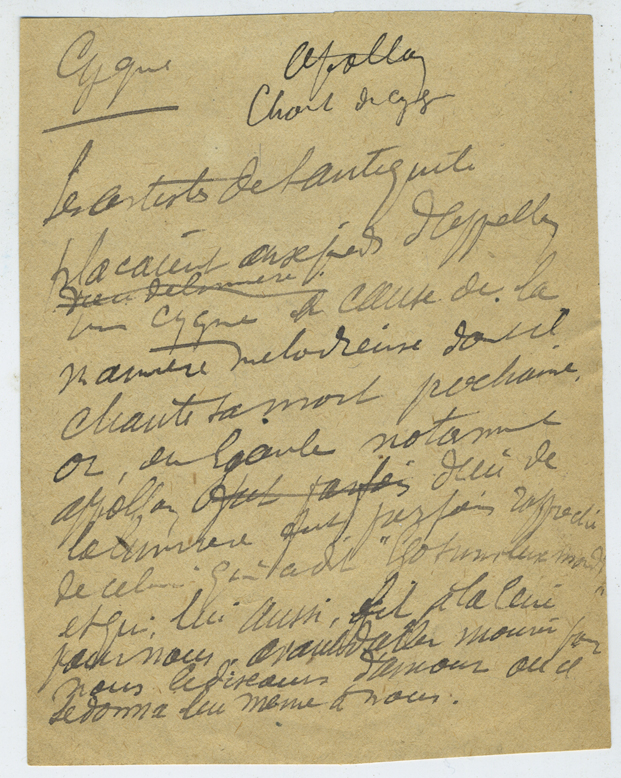 Cygne
Apollon
Chant du cygne
Les artistes de l'antiquité
plaçaient aux pieds d'Appollon
dieu de lumière
un cygne à cause de la
manière melodieuse dont il
chante sa mort prochaine.
Or, en Gaule notamment
apollon fut parfois dieu de
la lumière fut parfois rapproché
de celui qui a dit " lux mundi "
et qui, lui aussi, fit à la Cène
pour nous, avant d'aller mourir pour
nous le discours d'amour où il
se donna lui même à nous.